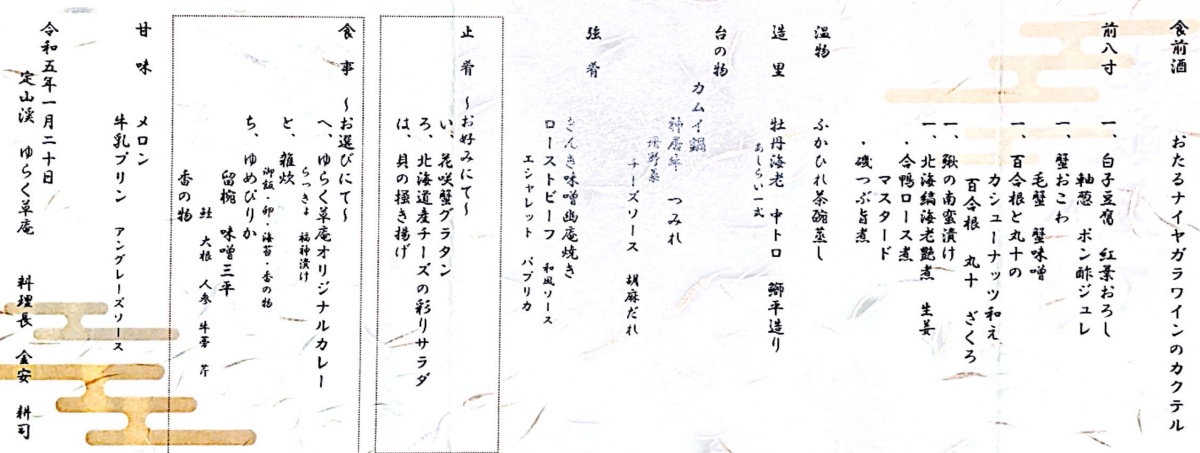 食前酒 おたるナイヤガラワインのカクテル
前八寸 一、白子豆腐 紅葉おろし
軸葱 ポン酢ジュレ
一、蟹おこわ
毛蟹 蟹味噌
一、百合根と丸十の
カシューナッツ和え
百合根 丸十 ざくろ
一、鰍の南蛮漬け
一、北海縞海老艶煮 生姜
・合鴨ロース煮
マスタード
・磯つぶ旨煮
温物 ふかひれ茶碗蒸し
造里 牡丹海老 中トロ 鰤平造り
あしらい一式
台の物 カムイ鍋
神居豚 つみれ
野菜
チーズソース 胡麻だれ
強肴 きんき味噌幽庵焼き
ローストビーフ 和風ソース
エシャレット パプリカ
止肴 ～お好みにて～
い、花咲蟹グラタン
ろ、北海道産チーズの彩りサラダ
は、貝の掻き揚げ
食事 ～お選びにて～
へ、ゆらく草庵オリジナルカレー
らっきょ 福神漬け
と、雑炊
御飯・卵・海苔・香の物
ち、ゆめぴりか
留椀 味噌三平
鮭 大根 人参 牛蒡 芹
香の物
甘味 メロン
牛乳プリン アングレーズソース
令和五年一月二十日
定山渓 ゆらく草庵 料理長 金安 耕司